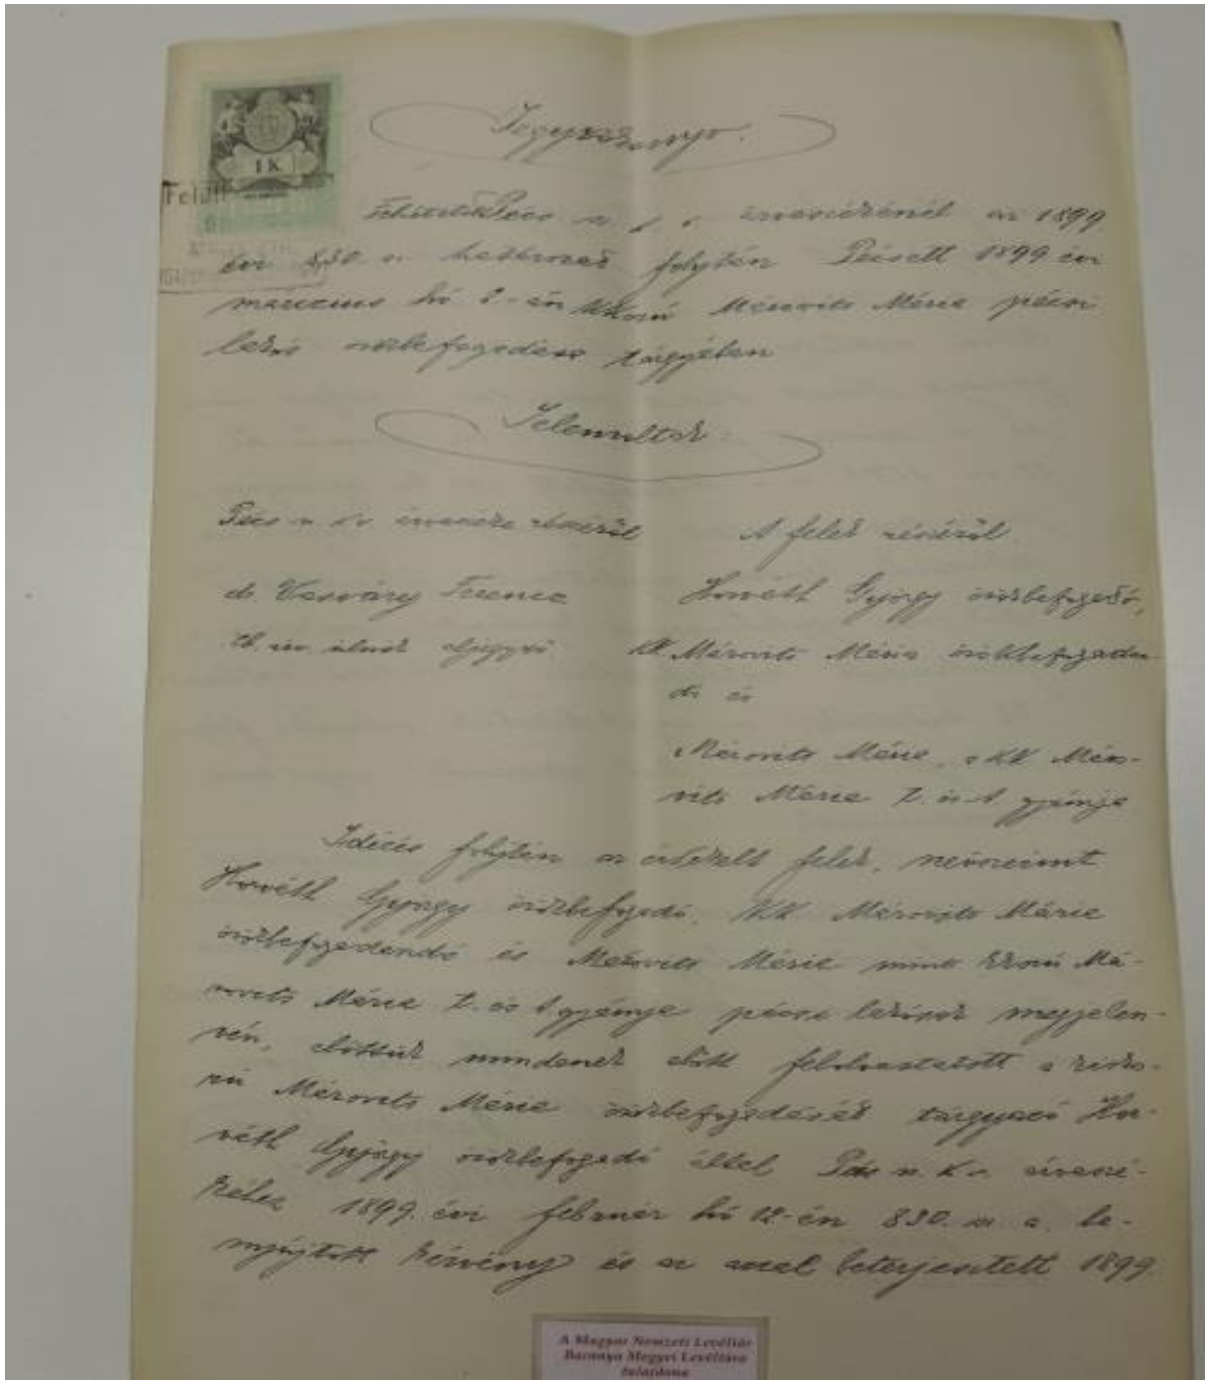 1 K
Jegyzőkönyv.
Felvétetett Pécs sz. k. v. árvaszékénél az 1899
évi 830. sz. határozat folytán Pécsett 1899 évi
márczius hó -én kkorú Márovits Mária pécsi
lakós örökbefogadása tárgyában
Jelenvoltak
Pécs sz. k. v. árvaszéke részéről
A felek részéről
dr. Vasváry Ferencz
Horváth György örökbefogadó,
aljegyző
kk Márovits Mária örökbefogadan-
dó és
Márovits Mária, a kk Máro-
vits Mária t. és t. gyámja
Idézés folytán az érdekelt felek, névszerint
Horváth György örökbefogadó, kk. Márovits Mária
örökbefogadandó és Márovits Mária mint kkorú Má-
rovits Mária t. és t. gyámja pécsi lakósok megjelen-
vén, előttük mindenek előtt felolvastatott a kisko-
rú Márovits Mária örökbefogadását tárgyazó Hor-
váth György örökbefogadó által Pécs sz. k. v. árvaszé-
kéhez 1899. évi február hó 12-én 830. sz. a. be-
nyújtott kérvény és az azzal beterjesztett 1899.
A Magyar Nemzeti Levéltár
Baranya Megyei Levéltára
tulajdona